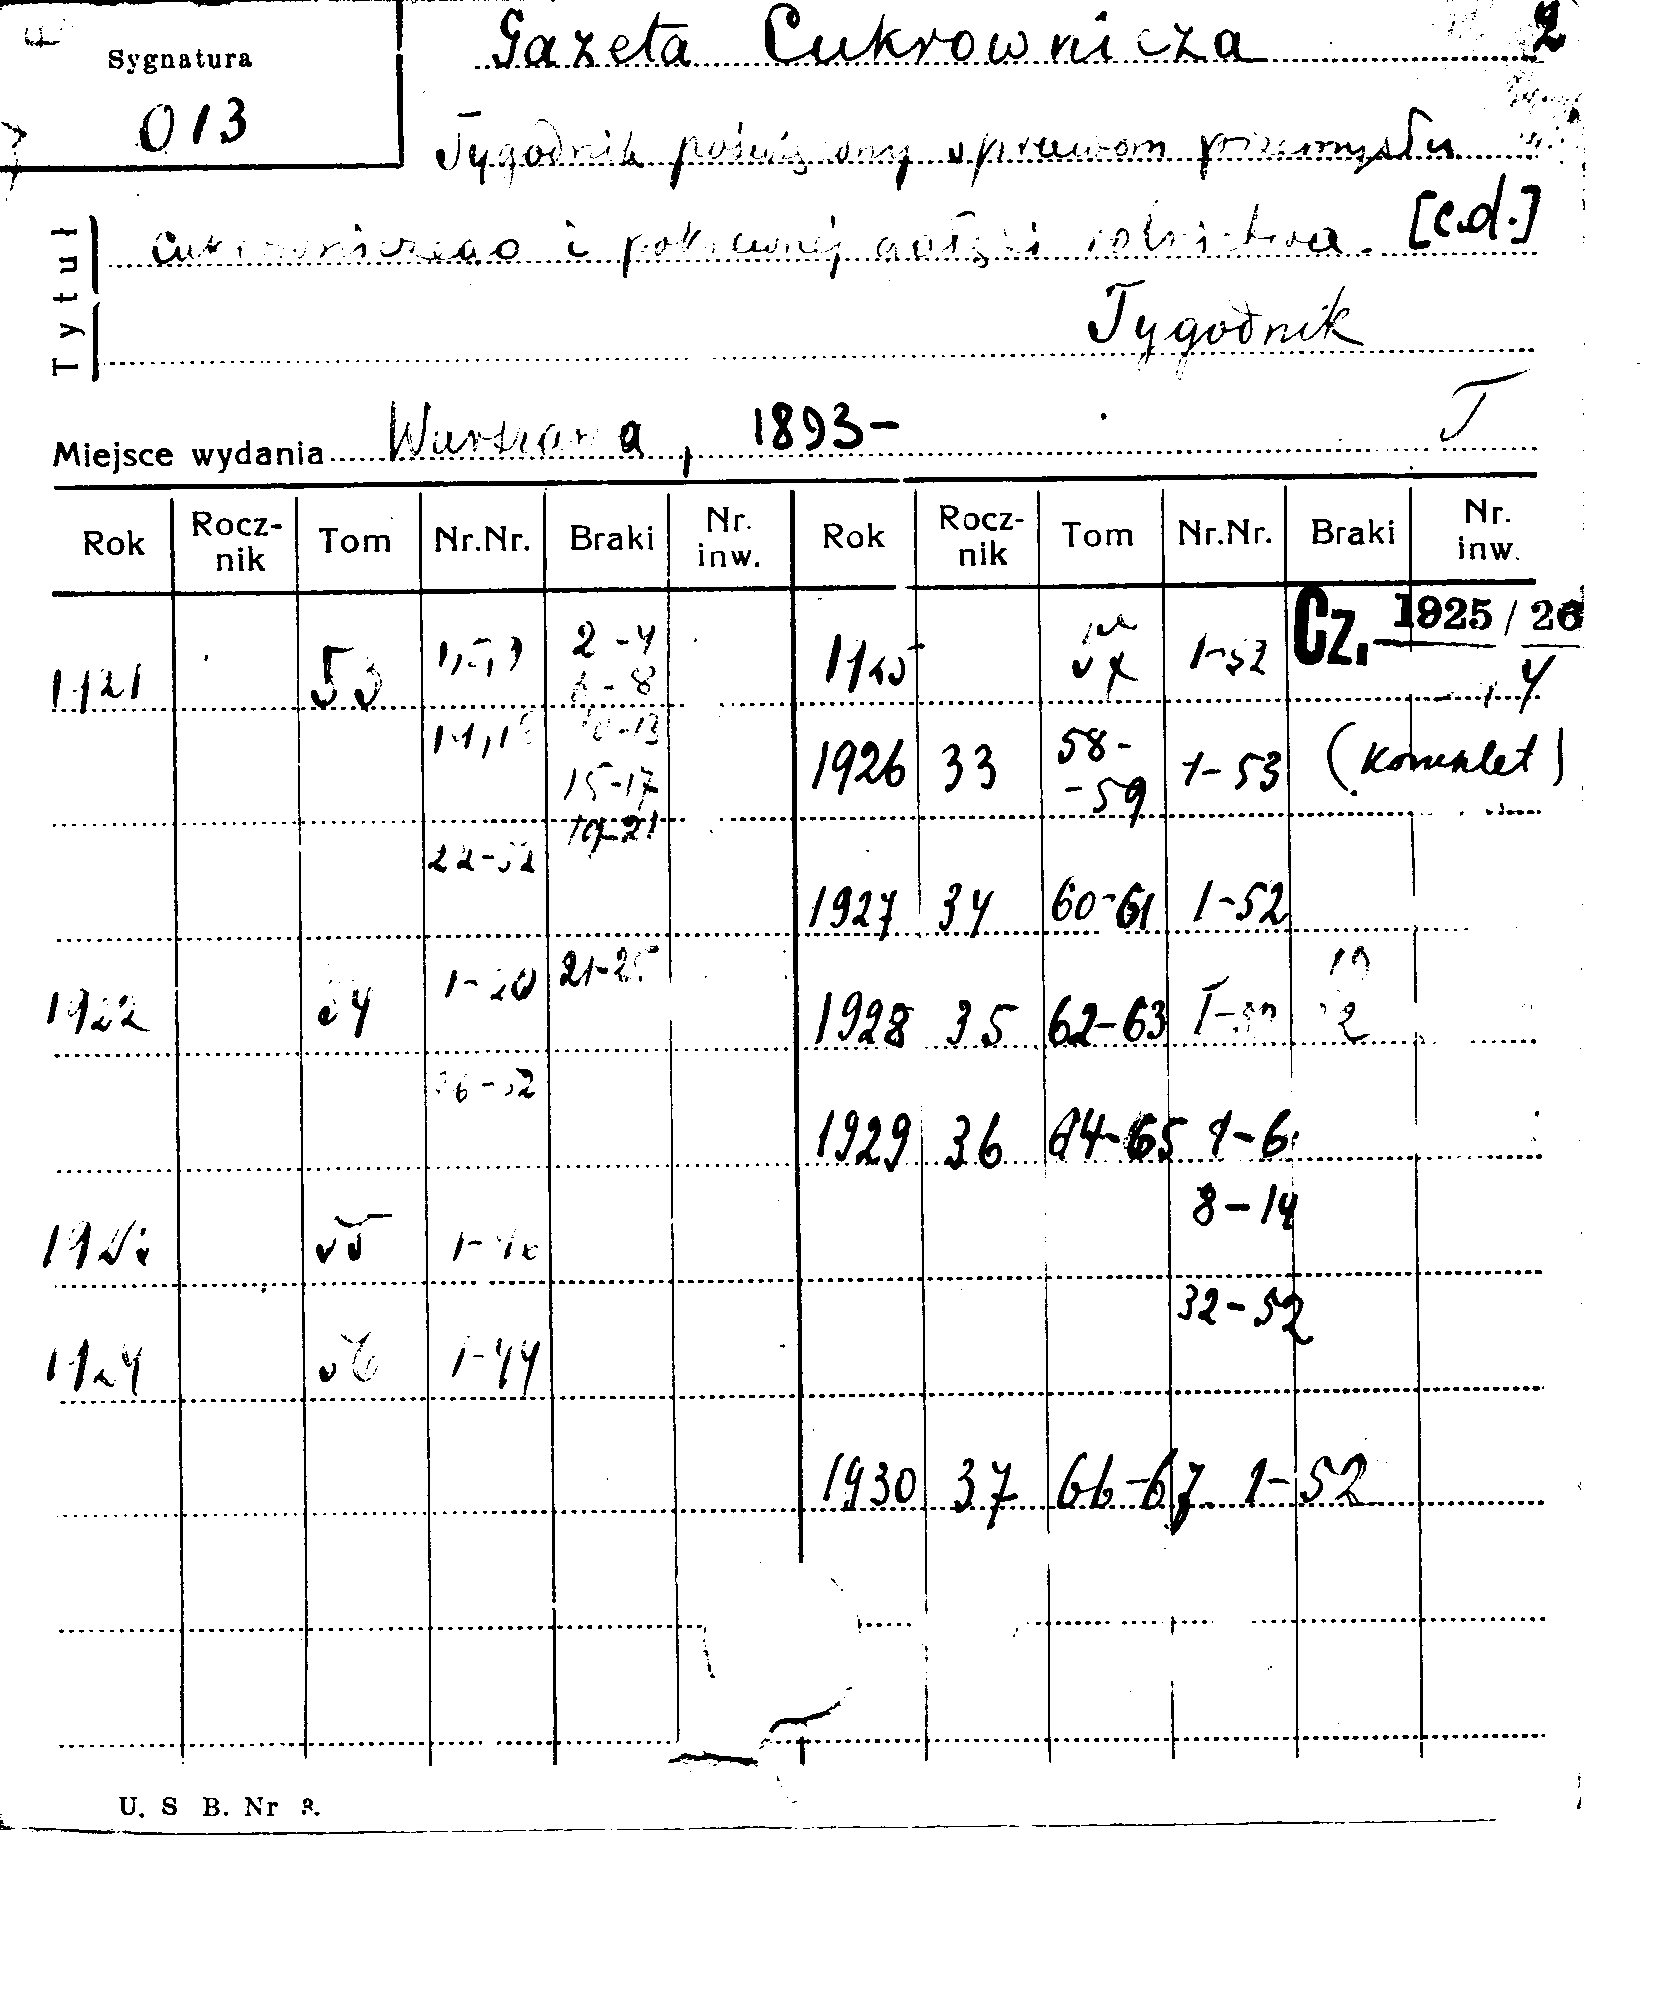 Sygnatura
013
Gazeta Cukrownicza
2
Tygodnik poświęcony sprawom przemysłu
cukrowniczego i pokrewnej gałęzi rolnictwa. [c.d.]
Tygodnik
Tytuł
T
Miejsce wydania Warszawa, 1893-
Rok Rocz-nik Tom Nr.Nr. Braki Nr. inw. Rok Rocz-nik Tom Nr.Nr. Braki Nr. inw.
1921 53 1,5,9 2-4
6-8
10-13
15-17
19-21
22-52
1922 54 1-20 21-25
26-52
55
1924 56 1-44
1925 57 1-52 Cz. 1925/26
4
1926 33 58-
-59 1-53 (komplet)
1927 34 60-61 1-52
1928 35 62-63
1929 36 64-65 1-6
8-14
32-52
1930 37 66-67 1-52
U. S B. Nr 3.